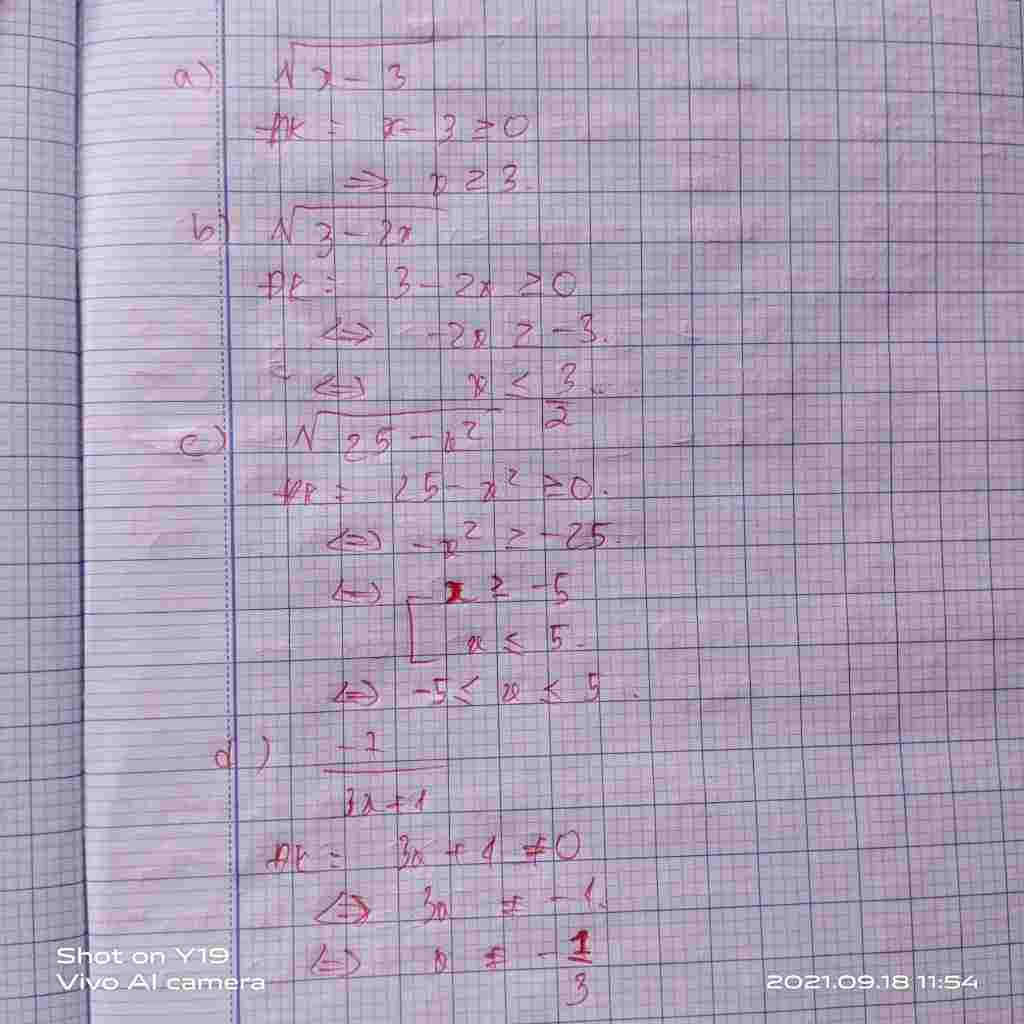 a) √x - 3
ĐK: x - 3 ≥ 0
=> x ≥ 3.
b) √3 - 2x
ĐK: 3 - 2x ≥ 0
<=> -2x ≥ -3.
<=> x ≤ 3/2.
c) √25 - x²
ĐK: 25 - x² ≥ 0.
<=> -x² ≥ -25.
<=> [ x ≥ -5
x ≤ 5.
<=> -5 ≤ x ≤ 5.
d) -7/3x + 1
ĐK: 3x + 1 ≠ 0
<=> 3x ≠ -1.
<=> x ≠ -1/3
Shot on Y19
Vivo AI camera
2021.09.18 11:54